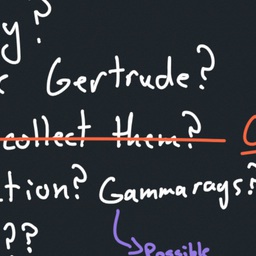 y?
Gertrude?
collect them?
tion? Gamma rays?
??
Possible